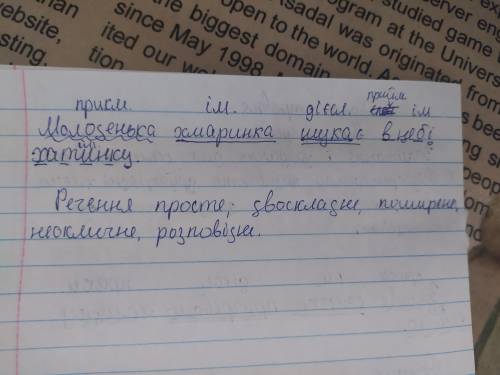 website,
than
sting.
since May 1998
tion
ited our
the biggest domain
open to the world. As
Tsadal was originated from
gram at the Univers
studied game
server eng
прикм. ім. дієсл. прийм ім
Молоденька хмаринка шукає в небі
хатинку.
Речення просте, двоскладне, поширене,
неоклична, розповідне.